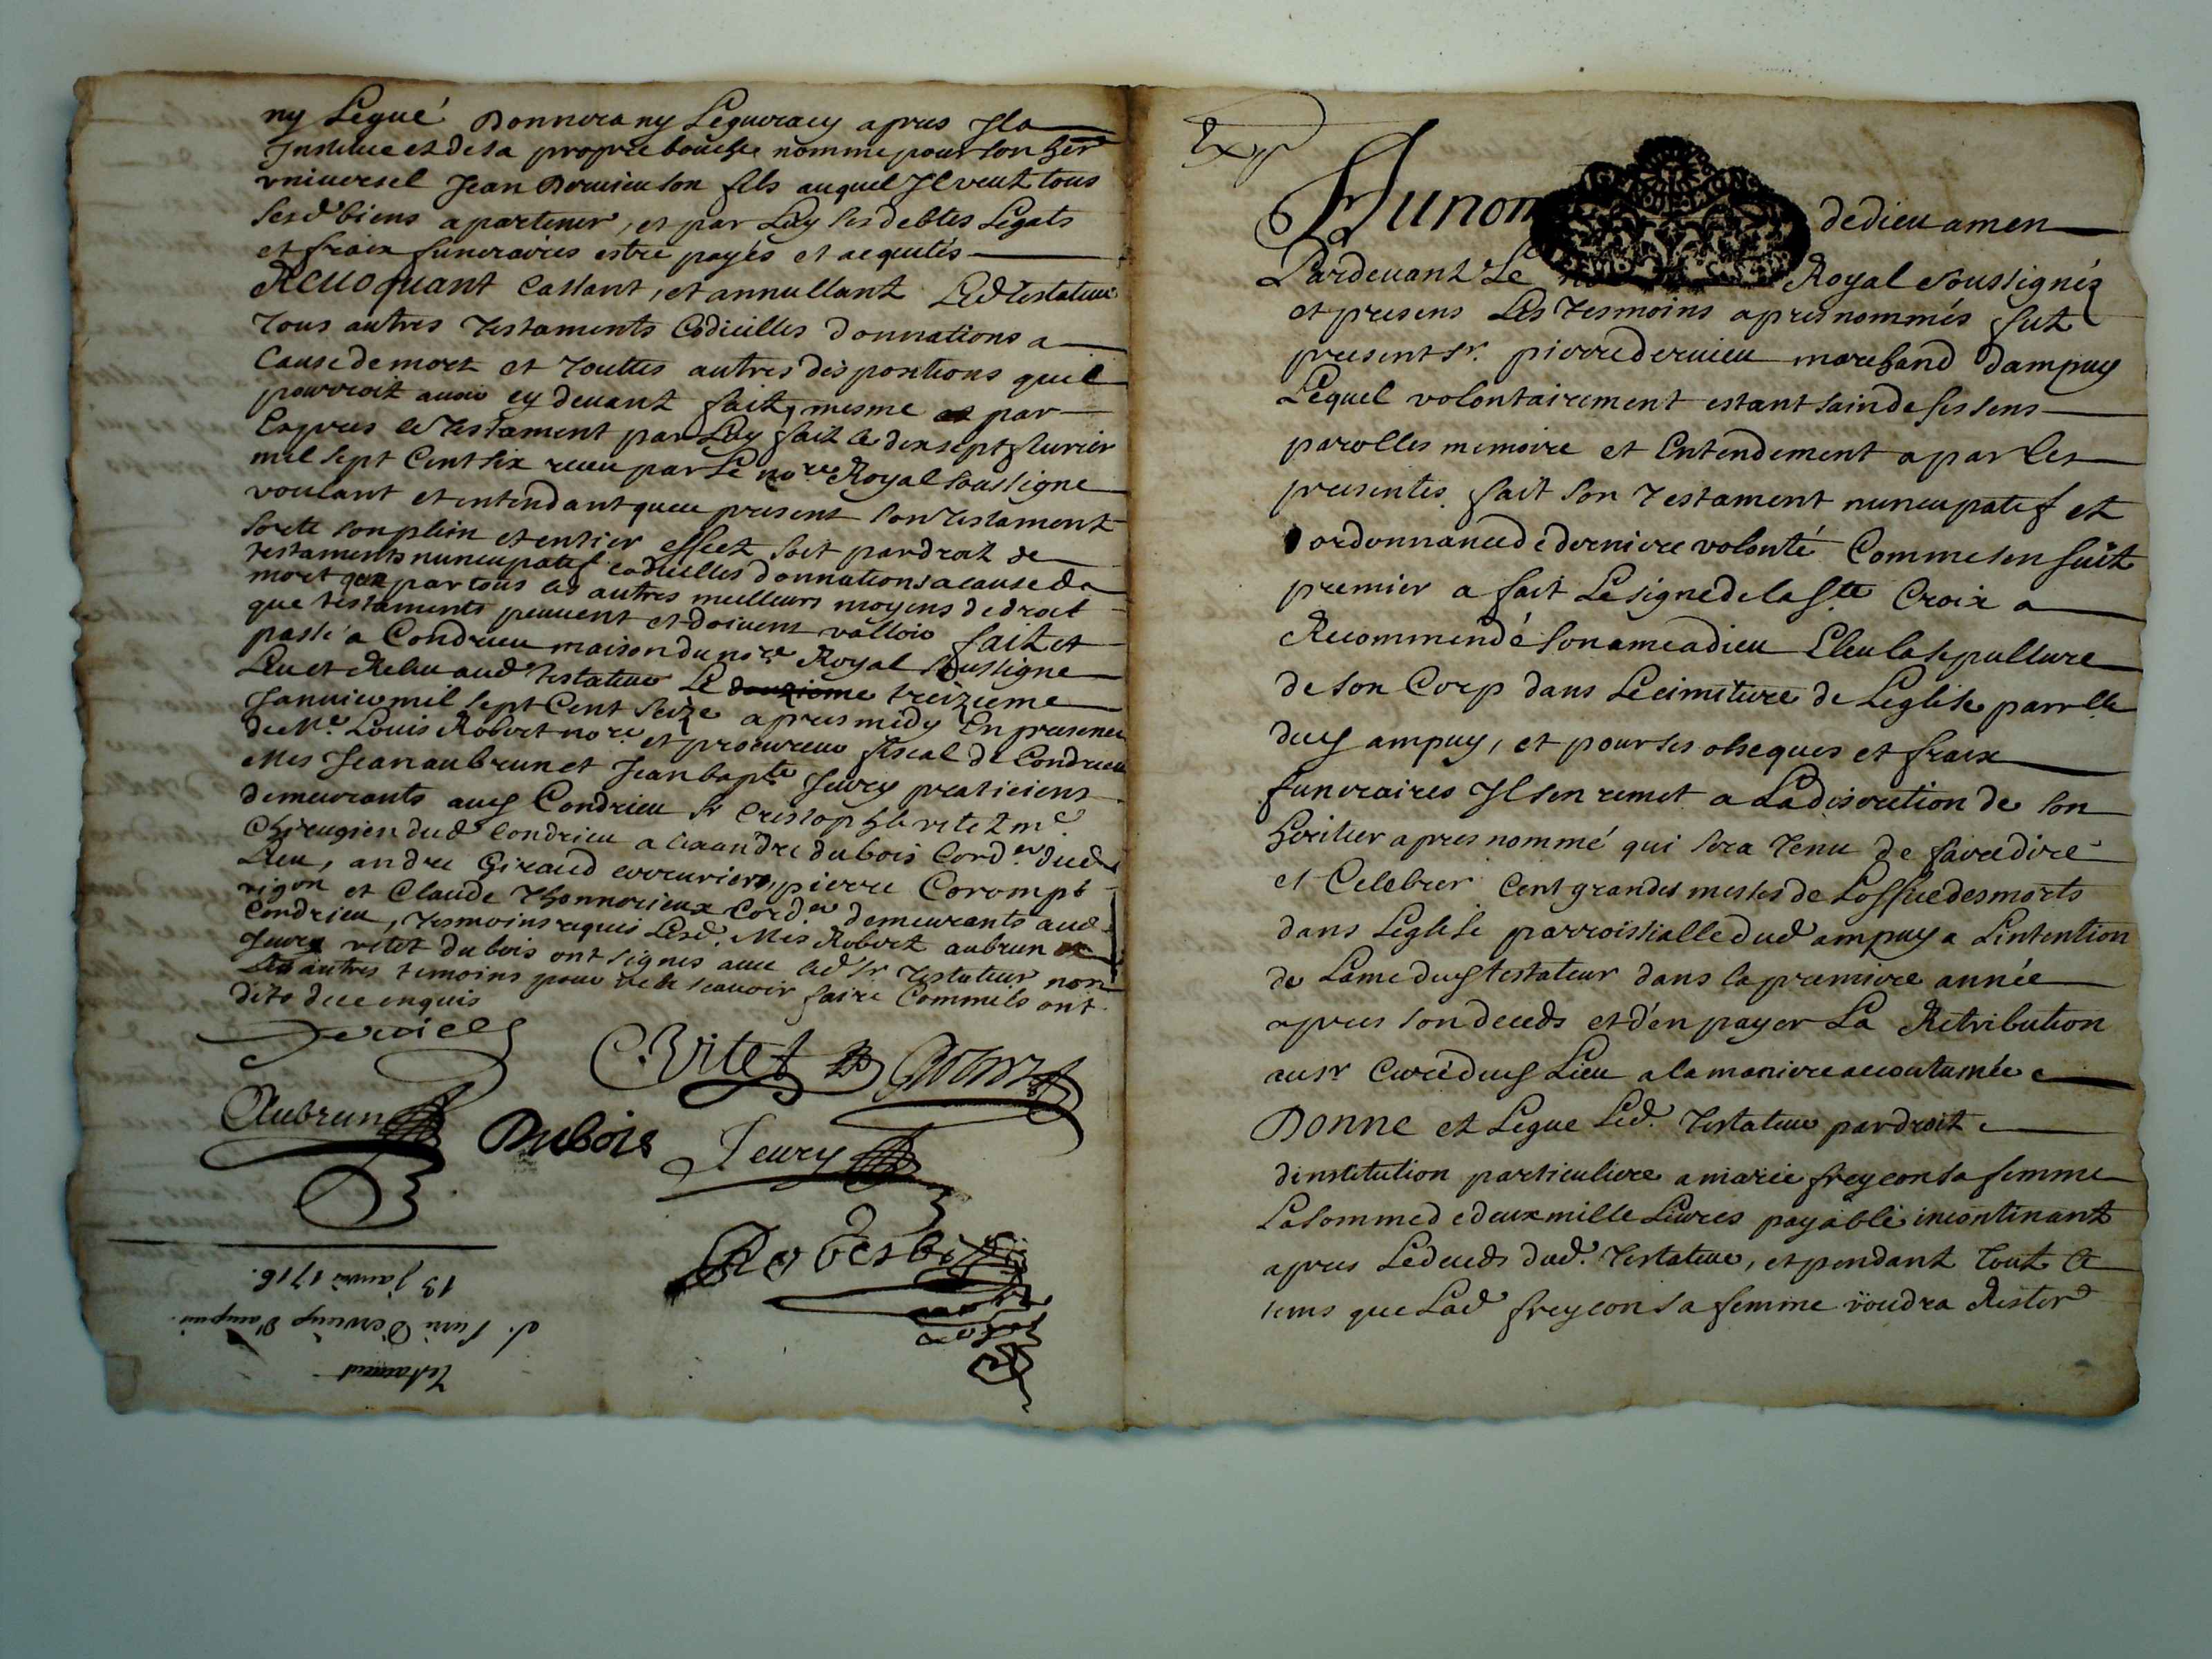 ny Legué Donnera ny Leguera cy apres Il a
Institue et de sa propre bouche nommé pour son her
universel Jean Dervieu son fils auquel Il veut tous
sesd biens apartenir, et par Luy ses debtes Legats
et fraix funeraires estre payés et acquités
Revoquant Cassant, et annullant Led testateur
Tous autres Testaments Codicilles donnations a
Cause de mort et Touttes autres dispositions quil
pourroit avoir cy devant fait, mesme par
Expres le Testament par Luy fait le dix sept fevrier
mil sept Cent six receu par Le nore Royal soussigne
voulant et entendant que ce present son Testament
sorte son plein et entier effect soit par droit de
testaments nuncupatif codicilles donnations a cause de
mort que par tous les autres meilleurs moyens de droit
que testaments peuvent et doivent valloir fait et
passé a Condrieu maison du nore Royal soussigne
Leu et Releu aud Testateur Le treizieme
Janvier mil sept Cent seize apres midy En presence
de Me. Louis Robert nore. et procureur fiscal de Condrieu
Mes Jean aubrun et Jean bapte Jeury praticiens
demeurants aud Condrieu Sr Cristophle vitet me.
Chirugien dud Condrieu alexandre dubois Corder dud
Lieu, andre Giraud, pierre Corompt
vigon et Claude Thonnerieux Corder demeurants aud
Condrieu, Tesmoins requis Lesd. Mes Robert aubrun
Jeury vitet dubois ont signes avec led Sr Testateur non
Les autres temoins pour ne le scavoir faire Comme ils ont
dits de ce enquis
Dervieu
C. Vitet
Aubrun
Dubois
Jeury
Testament
de Sr. Pierre Dervieup d'ampuis.
13 Janvr 1716.
Exp
Au nom de dieu amen
Pardevant Le Royal soussignés
et presens Les Tesmoins apres nommés fut
present Sr. pierre dervieu marchand dampuy
Lequel volontairement estant sain de ses sens
parolles memoire et Entendement a par les
presentes fait son Testament nuncupatif et
ordonnance de derniere volonté Comme sen suit
premier a fait Le signe de la Ste Croix a
Recommendé son ame a dieu Eleu la sepulture
de son Corp dans Le cimitiere de Leglise parrlle
dud ampuy, et pour ses obseques et fraix
funeraires Il sen remet a La discretion de son
heritier apres nommé qui sera Tenu de faire dire
et Celebrer Cent grandes messes de Loffice des morts
dans Leglise parroissialle dud ampuy a Lintention
de Lame dud testateur dans la premiere année
apres son deceds et d'en payer La Retribution
au sr Curé dud Lieu a la maniere accoutumée
Donne et Legue Led. Testateur par droit
dinstitution particuliere a marie freycon sa femme
La somme de deux mille Livres payable incontinant
apres Le deceds dud. Testateur, et pendant Tout le
tems que Lad freycon sa femme voudra Rester